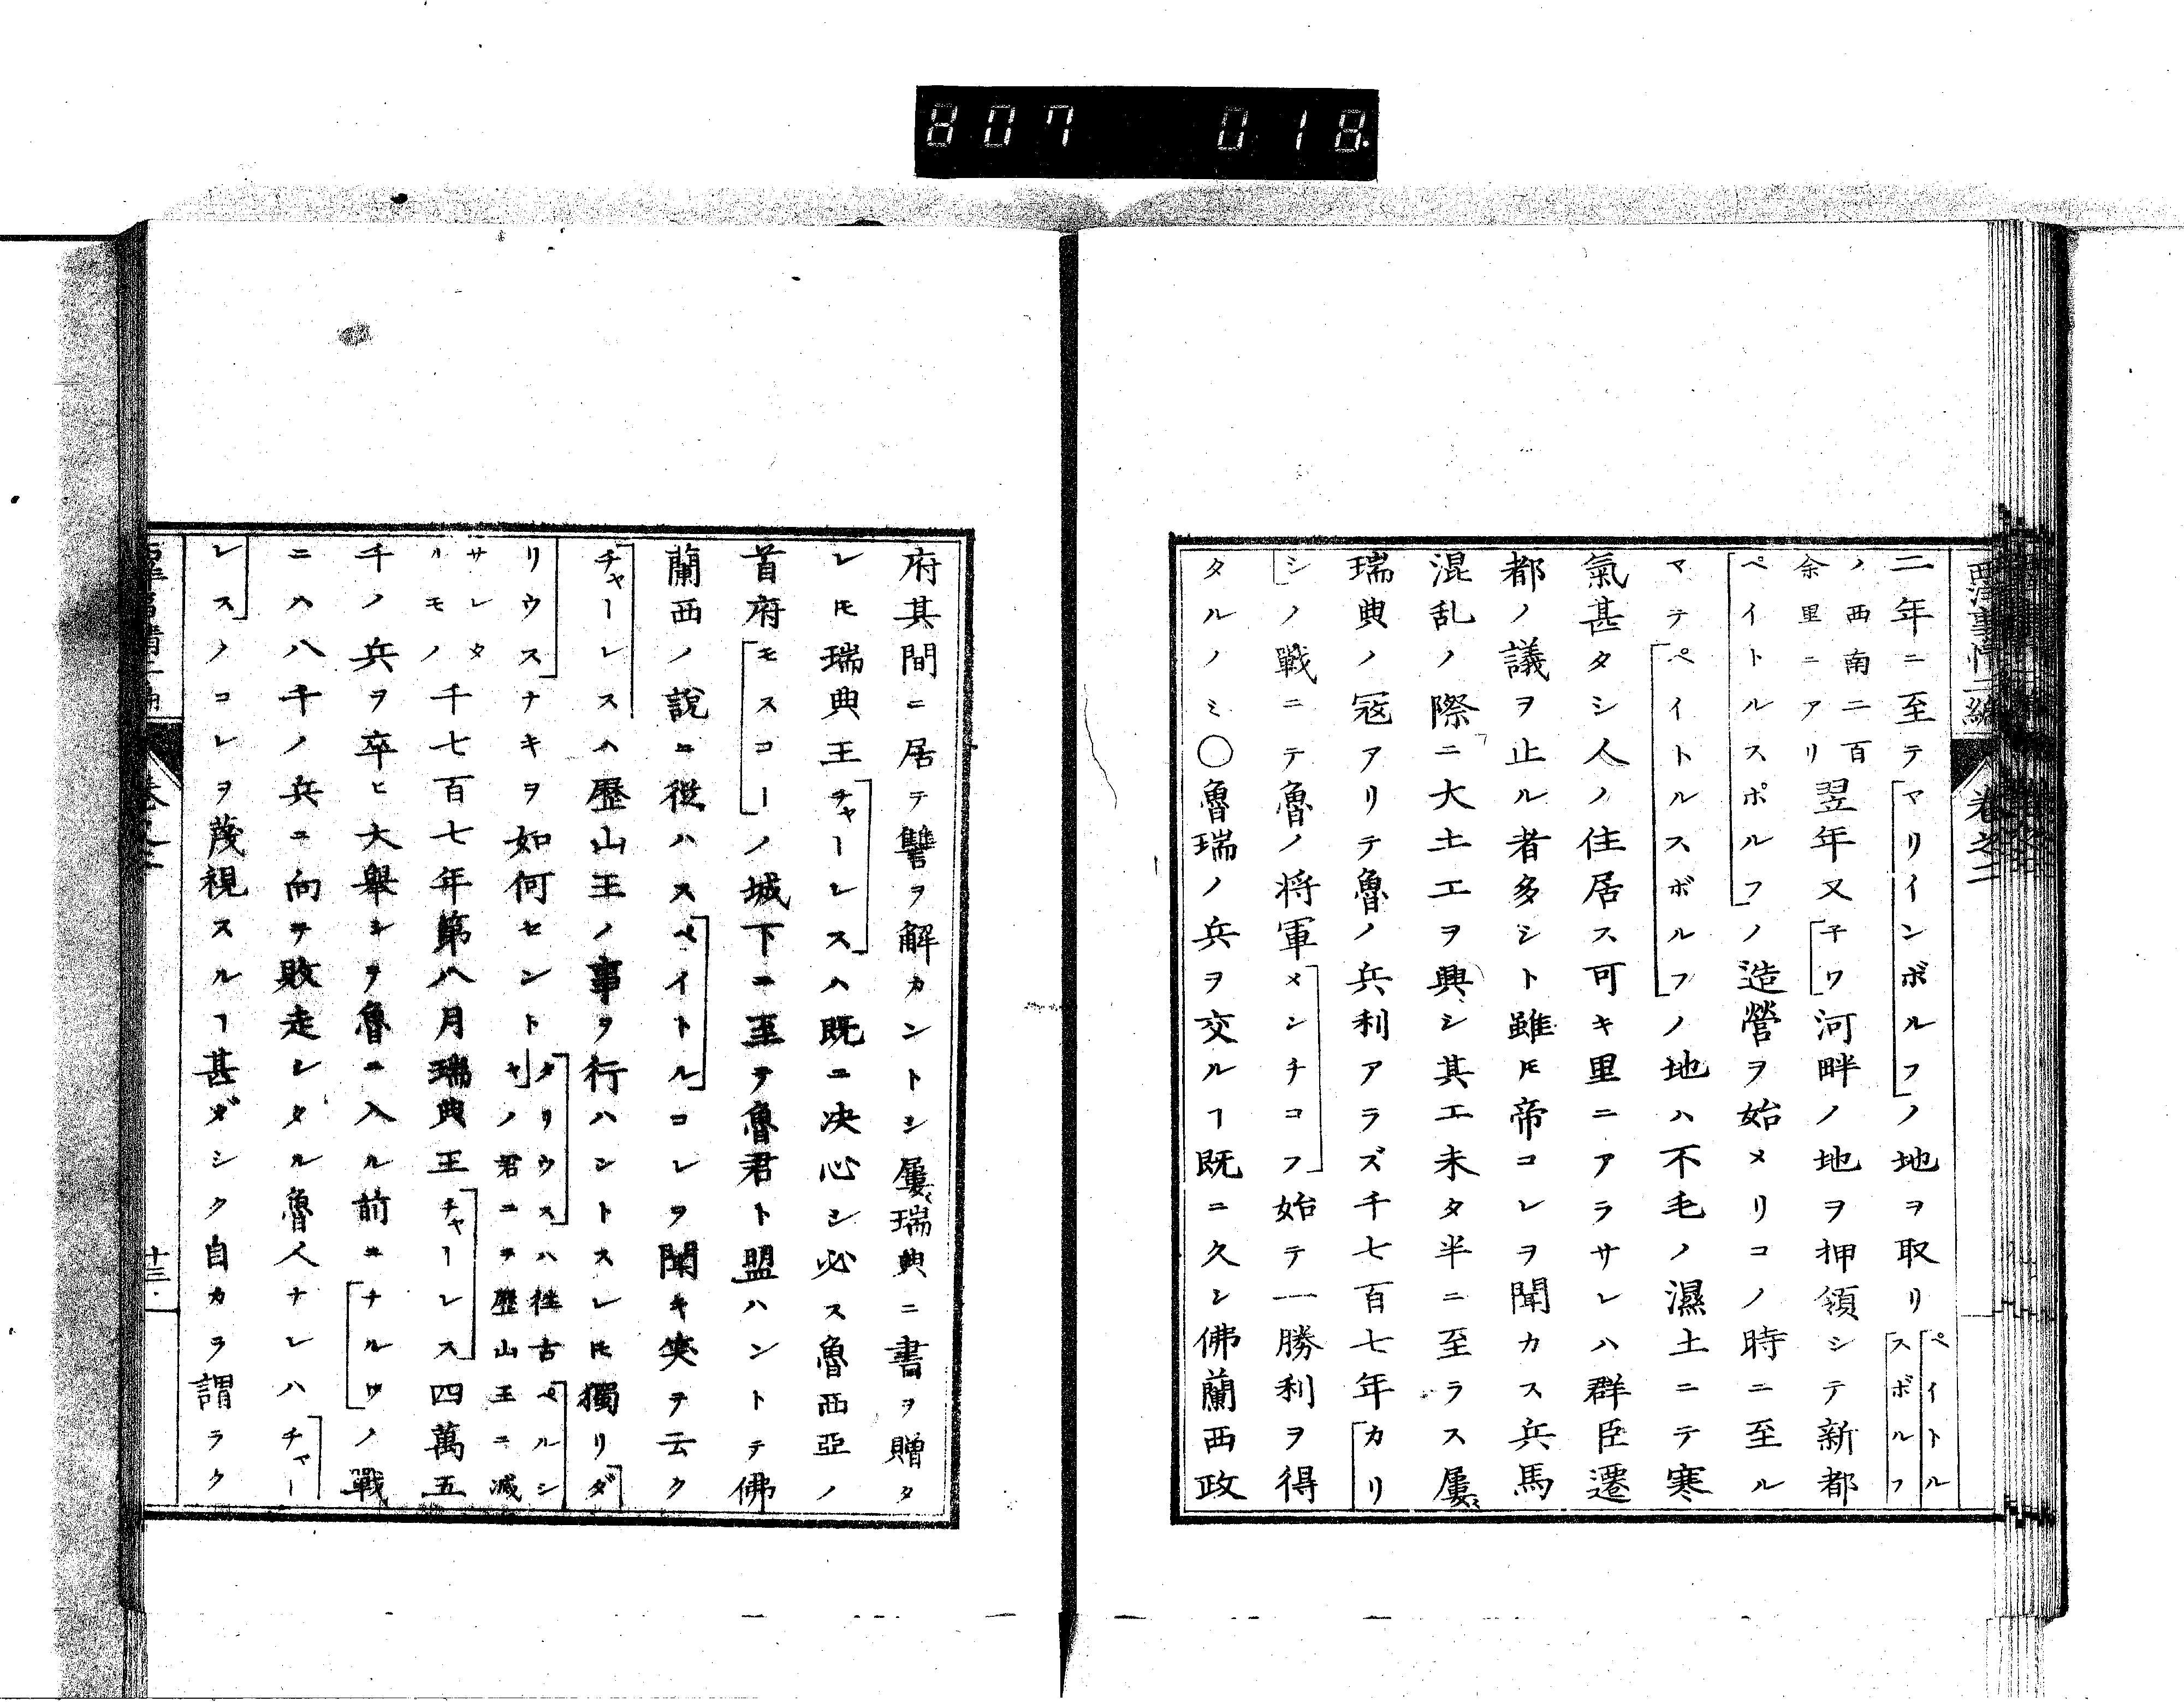 807 018
西洋事情二編 卷之二
二年ニ至テマリインボルフノ地ヲ取リペイトルスボルフ
ノ西南二百余里ニアリ翌年又子ワ河畔ノ地ヲ押領シテ新都
ペイトルスポルフノ造營ヲ始メリコノ時ニ至ル
マテペイトルスボルフノ地ハ不毛ノ濕土ニテ寒
氣甚タシ人ノ住居ス可キ里ニアラサレハ群臣遷
都ノ議ヲ止ル者多シト雖𪜈帝コレヲ聞カス兵馬
混乱ノ際ニ大土工ヲ興シ其工未タ半ニ至ラス屢〻
瑞典ノ寇アリテ魯ノ兵利アラズ千七百七年カリ
シノ戰ニテ魯ノ将軍メンチコフ始テ一勝利ヲ得
タルノミ〇魯瑞ノ兵ヲ交ルヿ既ニ久シ佛蘭西政
府其間ニ居テ讐ヲ解カントシ屢〻瑞典ニ書ヲ贈タ
レ𪜈瑞典王チャーレスハ既ニ决心シ必ス魯西亞ノ
首府モスコーノ城下ニ至テ魯君ト盟ハントテ佛
蘭西ノ說ニ從ハスペイトルコレヲ聞キ笑テ云ク
チャーレスハ歷山王ノ事ヲ行ハントスレ𪜈獨リダ
リウスナキヲ如何セントダリウスハ往古ペルシヤノ君ニテ歷山王ニ滅
サレタルモノ千七百七年第八月瑞典王チャーレス四萬五
千ノ兵ヲ卒ヒ大擧シテ魯ニ入ル前ニナルワノ戰
ニハ八千ノ兵ニ向テ敗走シタル魯人ナレハチャー
レスノコレヲ蔑視スルヿ甚ダシク自カラ謂ラク
十三